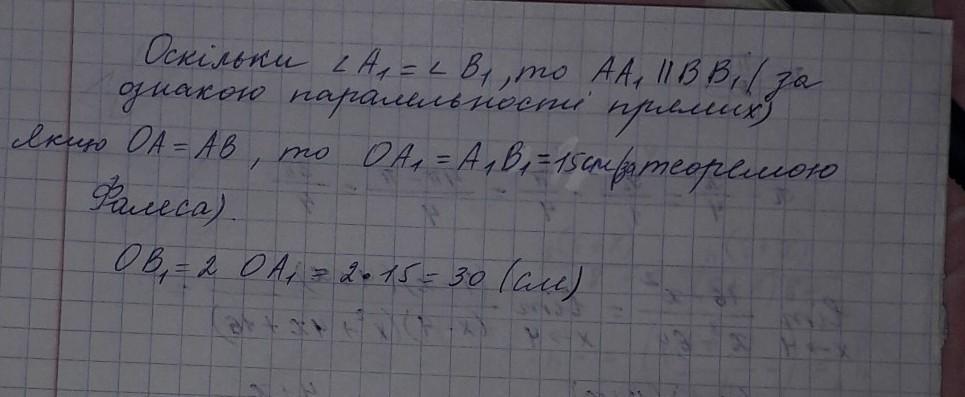 Оскільки ∠A₁ = ∠B₁, то AA₁ || BB₁ (за
ознакою паралельності прямих)
Якщо OA = AB, то OA₁ = A₁B₁ = 15см (за теоремою
Фалеса).
OB₁ = 2 OA₁ = 2·15 = 30 (см)